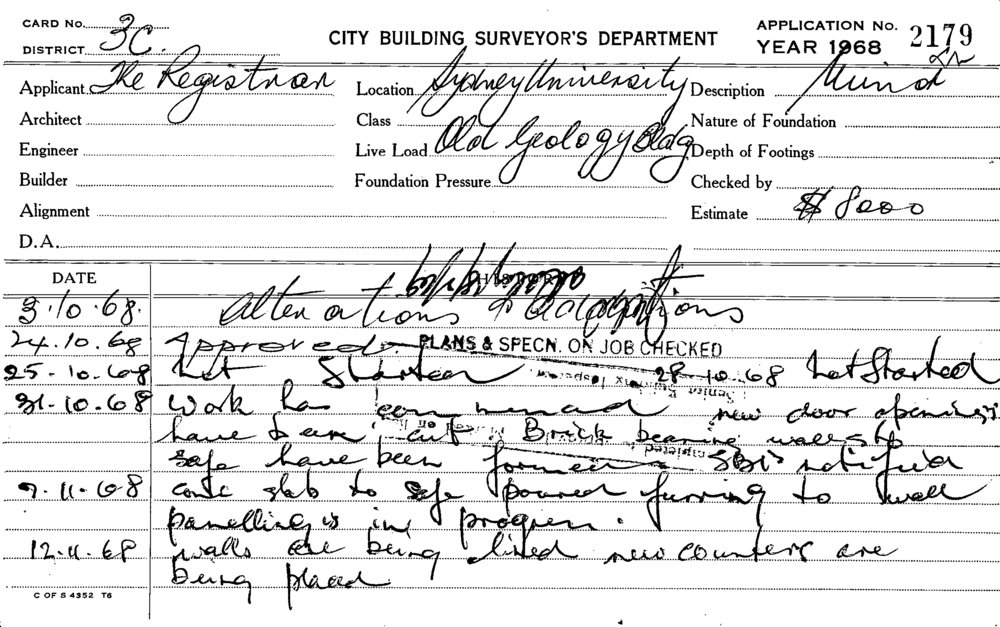 CARD No.
DISTRICT 3C.
CITY BUILDING SURVEYOR'S DEPARTMENT
APPLICATION No. 2179
YEAR 1968
Applicant The Registrar
Location Sydney University
Description Minor
Architect
Class
Nature of Foundation
Engineer
Live Load Old Geology Bldg
Depth of Footings
Builder
Foundation Pressure
Checked by
Alignment
Estimate $ 8000
D.A.
DATE
HISTORY
3.10.68. Alterations & Adaptations
24.10.68 Approved.
PLANS & SPECN. ON JOB CHECKED
25.10.68 Not Started 28.10.68 Not Started
31.10.68 Work has commenced new door openings
have been cut Brick bearing walls to
safe have been formed SBI notified
9.11.68 conc slab to safe poured furring to wall
panelling is in progress.
12.11.68 walls are being lined new counters are
being placed
C OF S 4352 T6